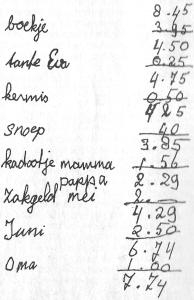 8.45
boekje 3.95
4.50
tante Eva 0.25
4.75
kermis 0.50
4 25
snoep 40
3.85
kadootje mamma 1.56
pappa 2.29
Zakgeld mei 2.—
4.29
Juni 2.50
6.74
Oma 1.00
7.74